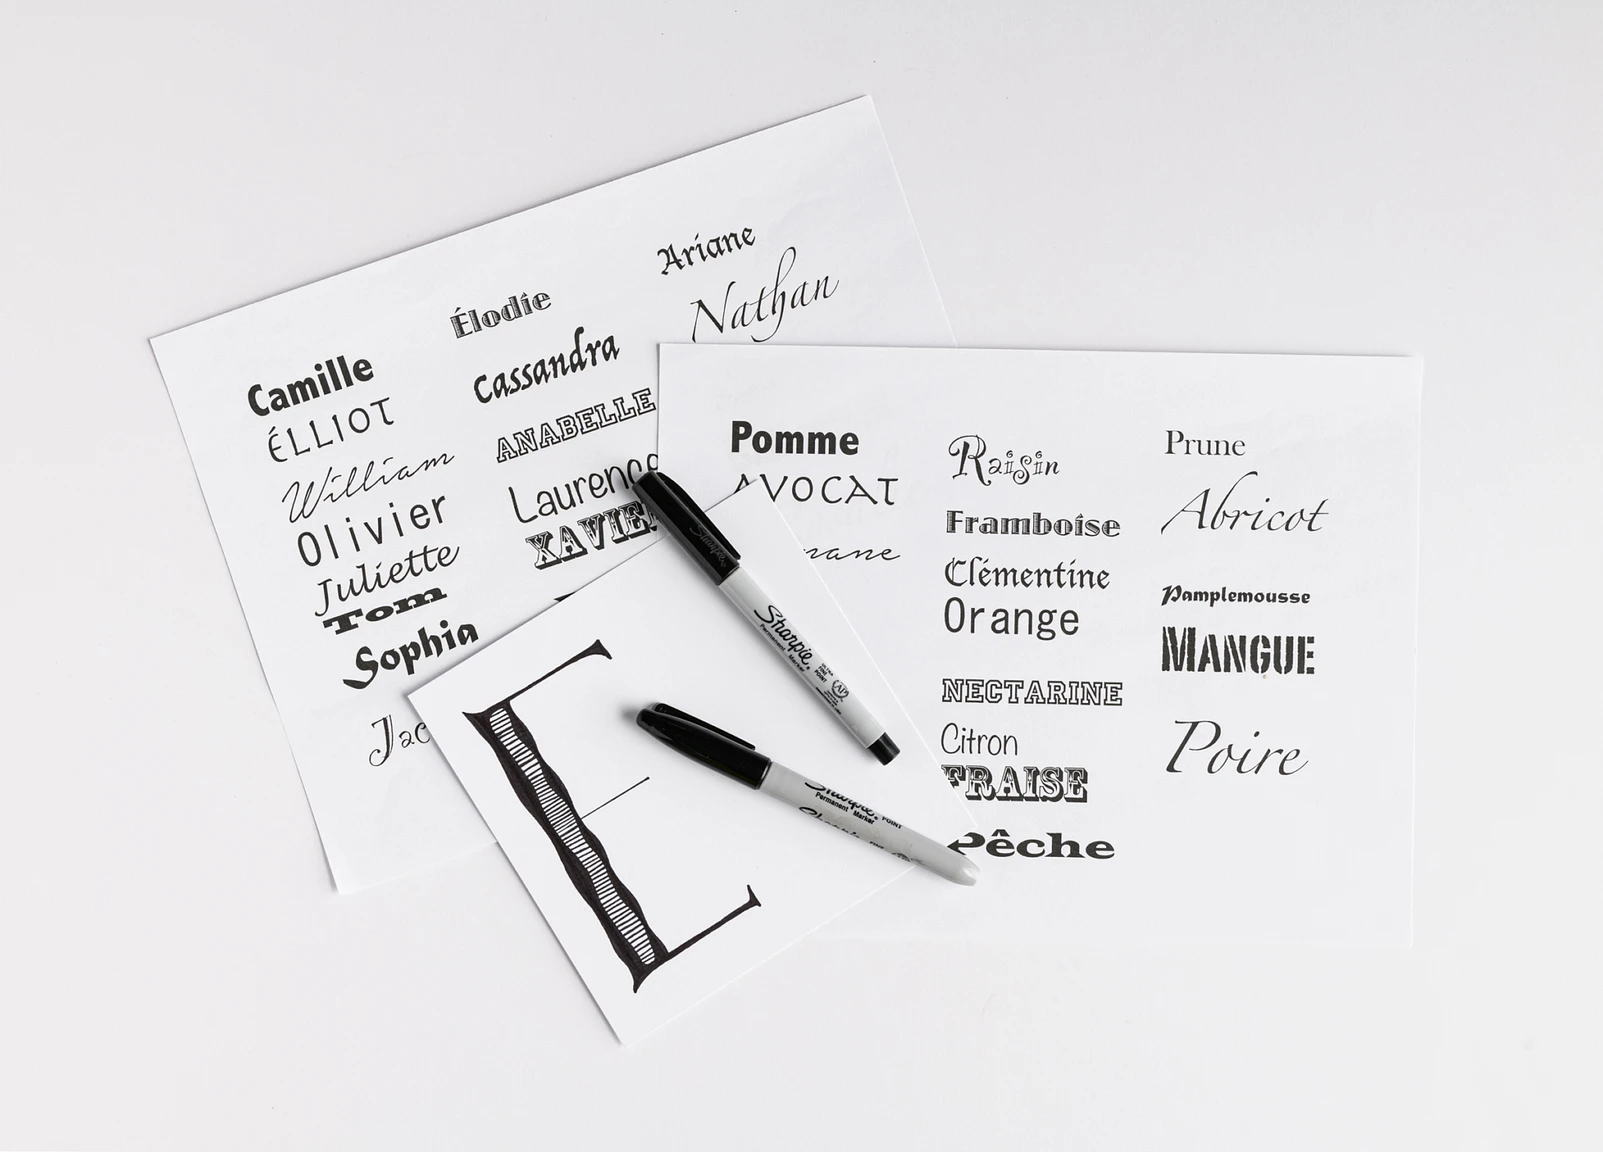 Camille
ÉLLIOT
William
Olivier
Juliette
Tom
Sophia
Élodie
Cassandra
ANABELLE
XAVIER
Ariane
Nathan
Pomme
AVOCAT
Raisin
Framboise
Clémentine
Orange
NECTARINE
Citron
FRAISE
Pêche
Prune
Abricot
Pamplemousse
MANGUE
Poire
E
Sharpie
Sharpie.
Permanent Marker
ULTRA FINE POINT
AP
Sharpie.
Permanent Marker
POINT
Sharpie
FINE